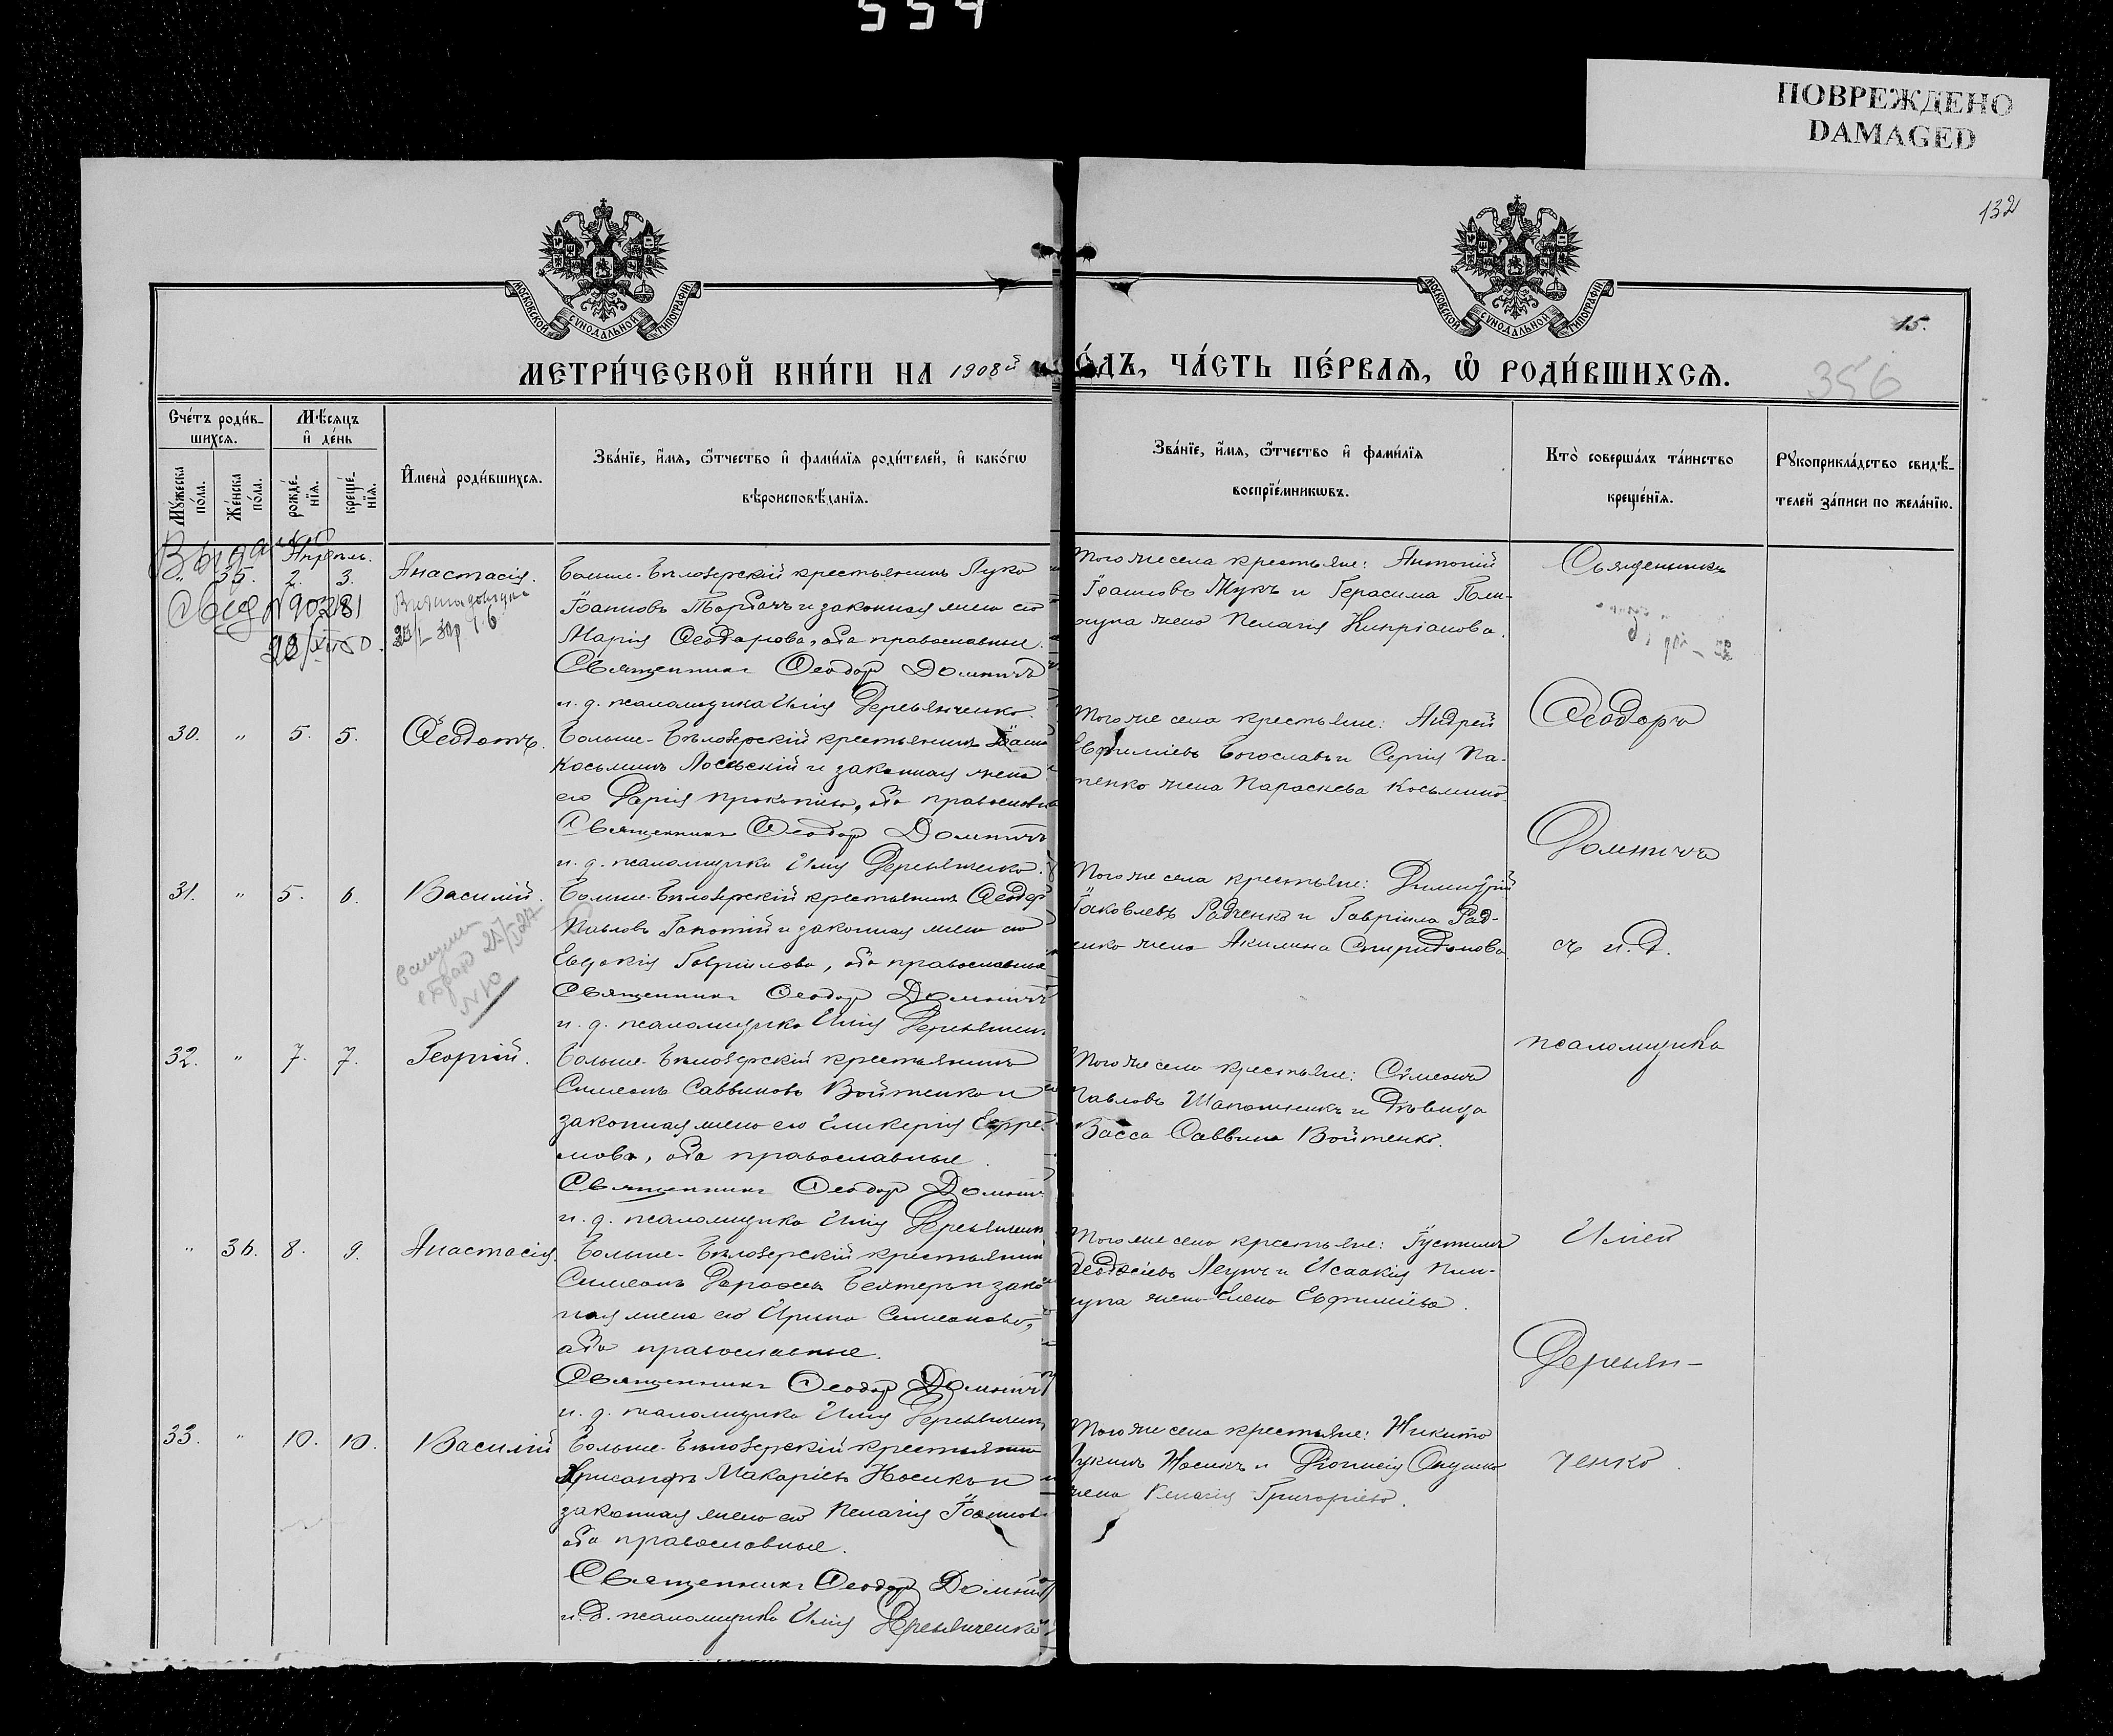 554
ПОВРЕЖДЕНО
DAMAGED
132
МОСКОВСКОЙ СѴНОДАЛЬНОЙ ТИПОГРАФІИ
МОСКОВСКОЙ СѴНОДАЛЬНОЙ ТИПОГРАФІИ
15.
МЕТРИ́ЧЕСКОЙ КНИ́ГИ НА 1908й
О́ДЪ, ЧА́СТЬ ПЕ́РВАѦ, Ѿ РОДИ́ВШИХСѦ.
356
Счетъ родив-
шихся.
Мѣсяцъ
и день
Мужеска пола.
Женска пола.
рожденія.
крещенія.
Имена родившихся.
Званіе, имя, отчество и фамилія родителей, и какогѡ
вѣроисповѣданія.
Званіе, имя, отчество и фамилія
воспріемникѡвъ.
Кто совершалъ таинство
крещенія.
Рукоприкладство свидѣ-
телей записи по желанію.
Апрѣль.
" 35. 2. 3. Анастасія.
Больше-Бѣлозерскій крестьянинъ Лука
Іоанновъ Торбачъ и законная жена его
Марія Ѳеодорова, оба православные.
Священникъ Ѳеодоръ Домничъ
и. д. псаломщика Илія Деревянченко.
Того же села крестьяне: Антоній
Іоанновъ Жукъ и Герасима
жена Пелагія Кипріанова.
30. " 5. 5. Ѳеодотъ.
Больше-Бѣлозерскій крестьянинъ
Косьминъ Лосьскій и законная жена
его Дарія Прокопіева, оба православн
Священникъ Ѳеодоръ Домничъ
и. д. псаломщика Илія Деревянченко.
Того же села крестьяне: Андрей
Евфиміевъ Богославъ и Сергія Па-
пенко жена Параскева Косьмина.
31. " 5. 6. Василій.
Больше-Бѣлозерскій крестьянинъ Ѳеодоръ
Павловъ Гапотій и законная жена его
Евдокія Гавріилова, оба православные
Священникъ Ѳеодоръ Домничъ
и. д. псаломщика Илія Деревянчен
Того же села крестьяне: Димитрій
Іаковлевъ Радченко и Гавріила Рад-
ченко жена Акилина Спиридонова.
32. " 7. 7. Георгій.
Больше-Бѣлозерскій крестьянинъ
Симеонъ Саввиновъ Войтенко и
законная жена его Гликерія Ефре-
мова, оба православные.
Священникъ Ѳеодоръ Домнич
и. д. псаломщика Илія Деревянчен
Того же села крестьяне: Симеонъ
Павловъ и дѣвица
Васса Саввина Войтенко.
" 36. 8. 9. Анастасія.
Больше-Бѣлозерскій крестьянин
Симеонъ Бехтеръ и закон
ная жена его Ирина Симеонова,
оба православные.
Священникъ Ѳеодоръ Домничъ
и. д. псаломщика Илія Деревянчен
Того же села крестьяне: Іустинъ
и Исаакія
жена Елена Евфиміева.
33. " 10. 10. Василій
Больше-Бѣлозерскій крестьянин
Хрисанфъ Макаріевъ Носикъ и
законная жена его Пелагія Іоаннов
оба православные.
Священникъ Ѳеодоръ Домнич
и. д. псаломщика Илія Деревянченко
Того же села крестьяне: Никита
Лукинъ Носикъ и Діонисія
жена Пелагія Григоріева.
Священникъ
Ѳеодоръ
Домничъ
съ и. д.
псаломщика
Иліей
Деревян-
ченко.